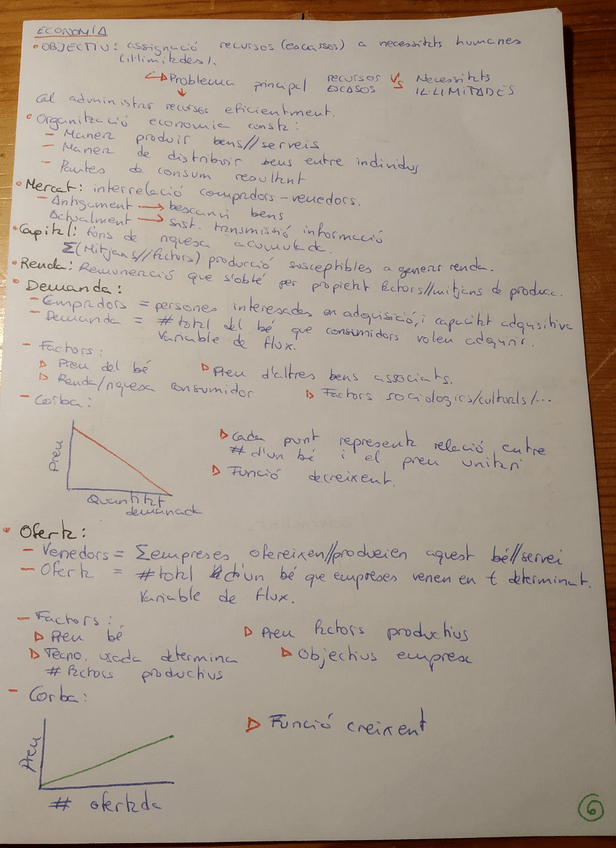 ECONOMIA
• OBJECTIU: assignació recursos (escassos) a necessitats humanes
(il·limitades).
↳ Problema principal RECURSOS ESCASOS VS NECESSITATS IL·LIMITADES
↓
Cal administrar recursos eficientment.
• Organització economia consta:
– Manera produir bens//serveis
– Manera de distribuir bens entre individus
– Pautes de consum resultant
• Mercat: interrelació compradors-venedors.
– Antigament → bescanvi bens
Actualment → sist. transmissió informació
• Capital: fons de riquesa acumulada.
Σ(Mitjans//factors) producció susceptibles a generar renda.
• Renda: Remuneració que s'obté per propietat factors//mitjans de producc.
• Demanda:
– Compradors = persones interesades en adquisició, i capacitat adquisitiva
– Demanda = # total del bé que consumidors volen adquirir.
Variable de flux.
– Factors:
▷ Preu del bé ▷ Preu d'altres bens associats.
▷ Renda/riquesa consumidor ▷ Factors sociologics/culturals/...
– Corba:
Preu
Quantitat
demanada
▷ Cada punt representa relació entre
# d'un bé i el preu unitari
▷ Funció decreixent.
• Oferta:
– Venedors = Σempreses ofereixen//produeien aquest bé//servei
– Oferta = # total d'un bé que empreses venen en t determinat.
Variable de flux.
– Factors:
▷ Preu bé ▷ Preu factors productius
▷ Tecno. usada determina ▷ Objectius empresa
# factors productius
– Corba:
▷ Funció creixent
Preu
# ofertada
6